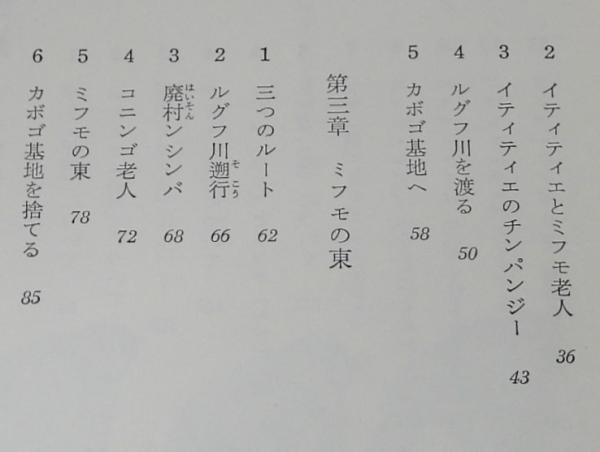 2 イティティエとミフモ老人 36
3 イティティエのチンパンジー 43
4 ルグフ川を渡る 50
5 カボゴ基地へ 58
第三章 ミフモの東
1 三つのルート 62
2 ルグフ川遡行 66
そこう
3 廃村ンシンバ 68
はいそん
4 コニンゴ老人 72
5 ミフモの東 78
6 カボゴ基地を捨てる 85